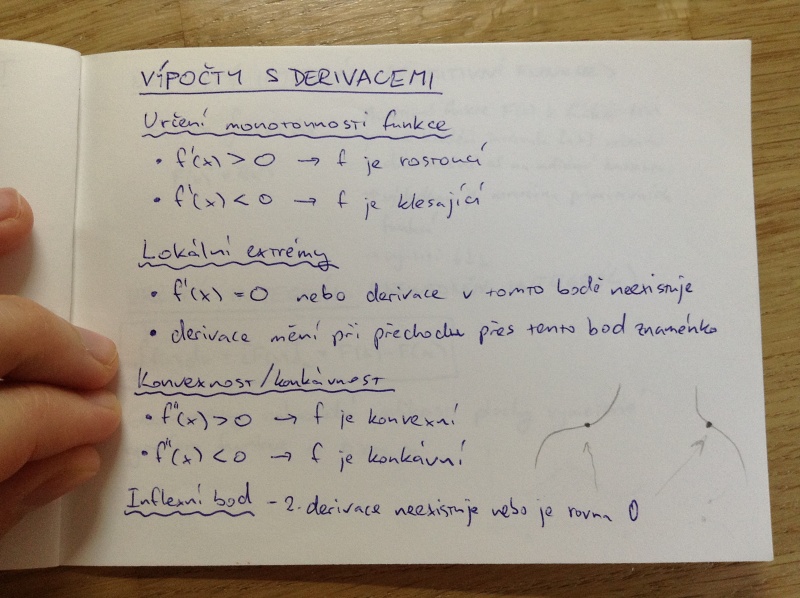 VÍPOČTY S DERIVACEMI
Určení monotonnosti funkce
• f'(x) > 0 → f je rostoucí
• f'(x) < 0 → f je klesající
Lokální extrémy
• f'(x) = 0 nebo derivace v tomto bodě neexistuje
• derivace mění při přechodu přes tento bod znaménko
Konvexnost/konkávnost
• f''(x) > 0 → f je konvexní
• f''(x) < 0 → f je konkávní
Inflexní bod - 2. derivace neexistuje nebo je rovna 0